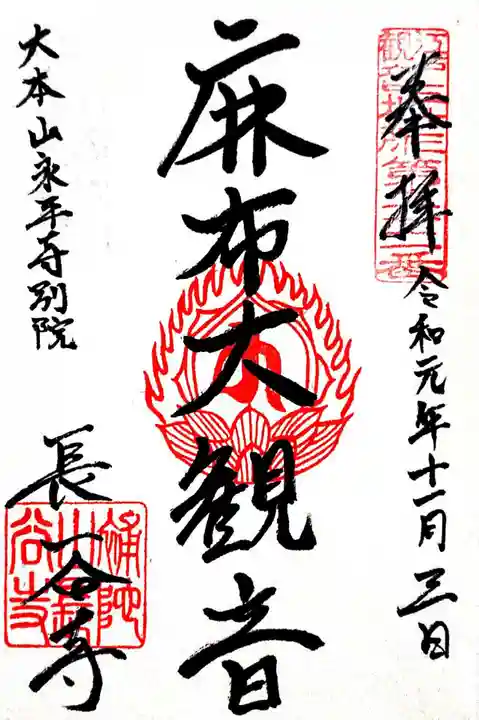 奉拝
令和元年十一月三日
麻布大観音
大本山永平寺別院
長谷寺
補陀
山長
谷寺